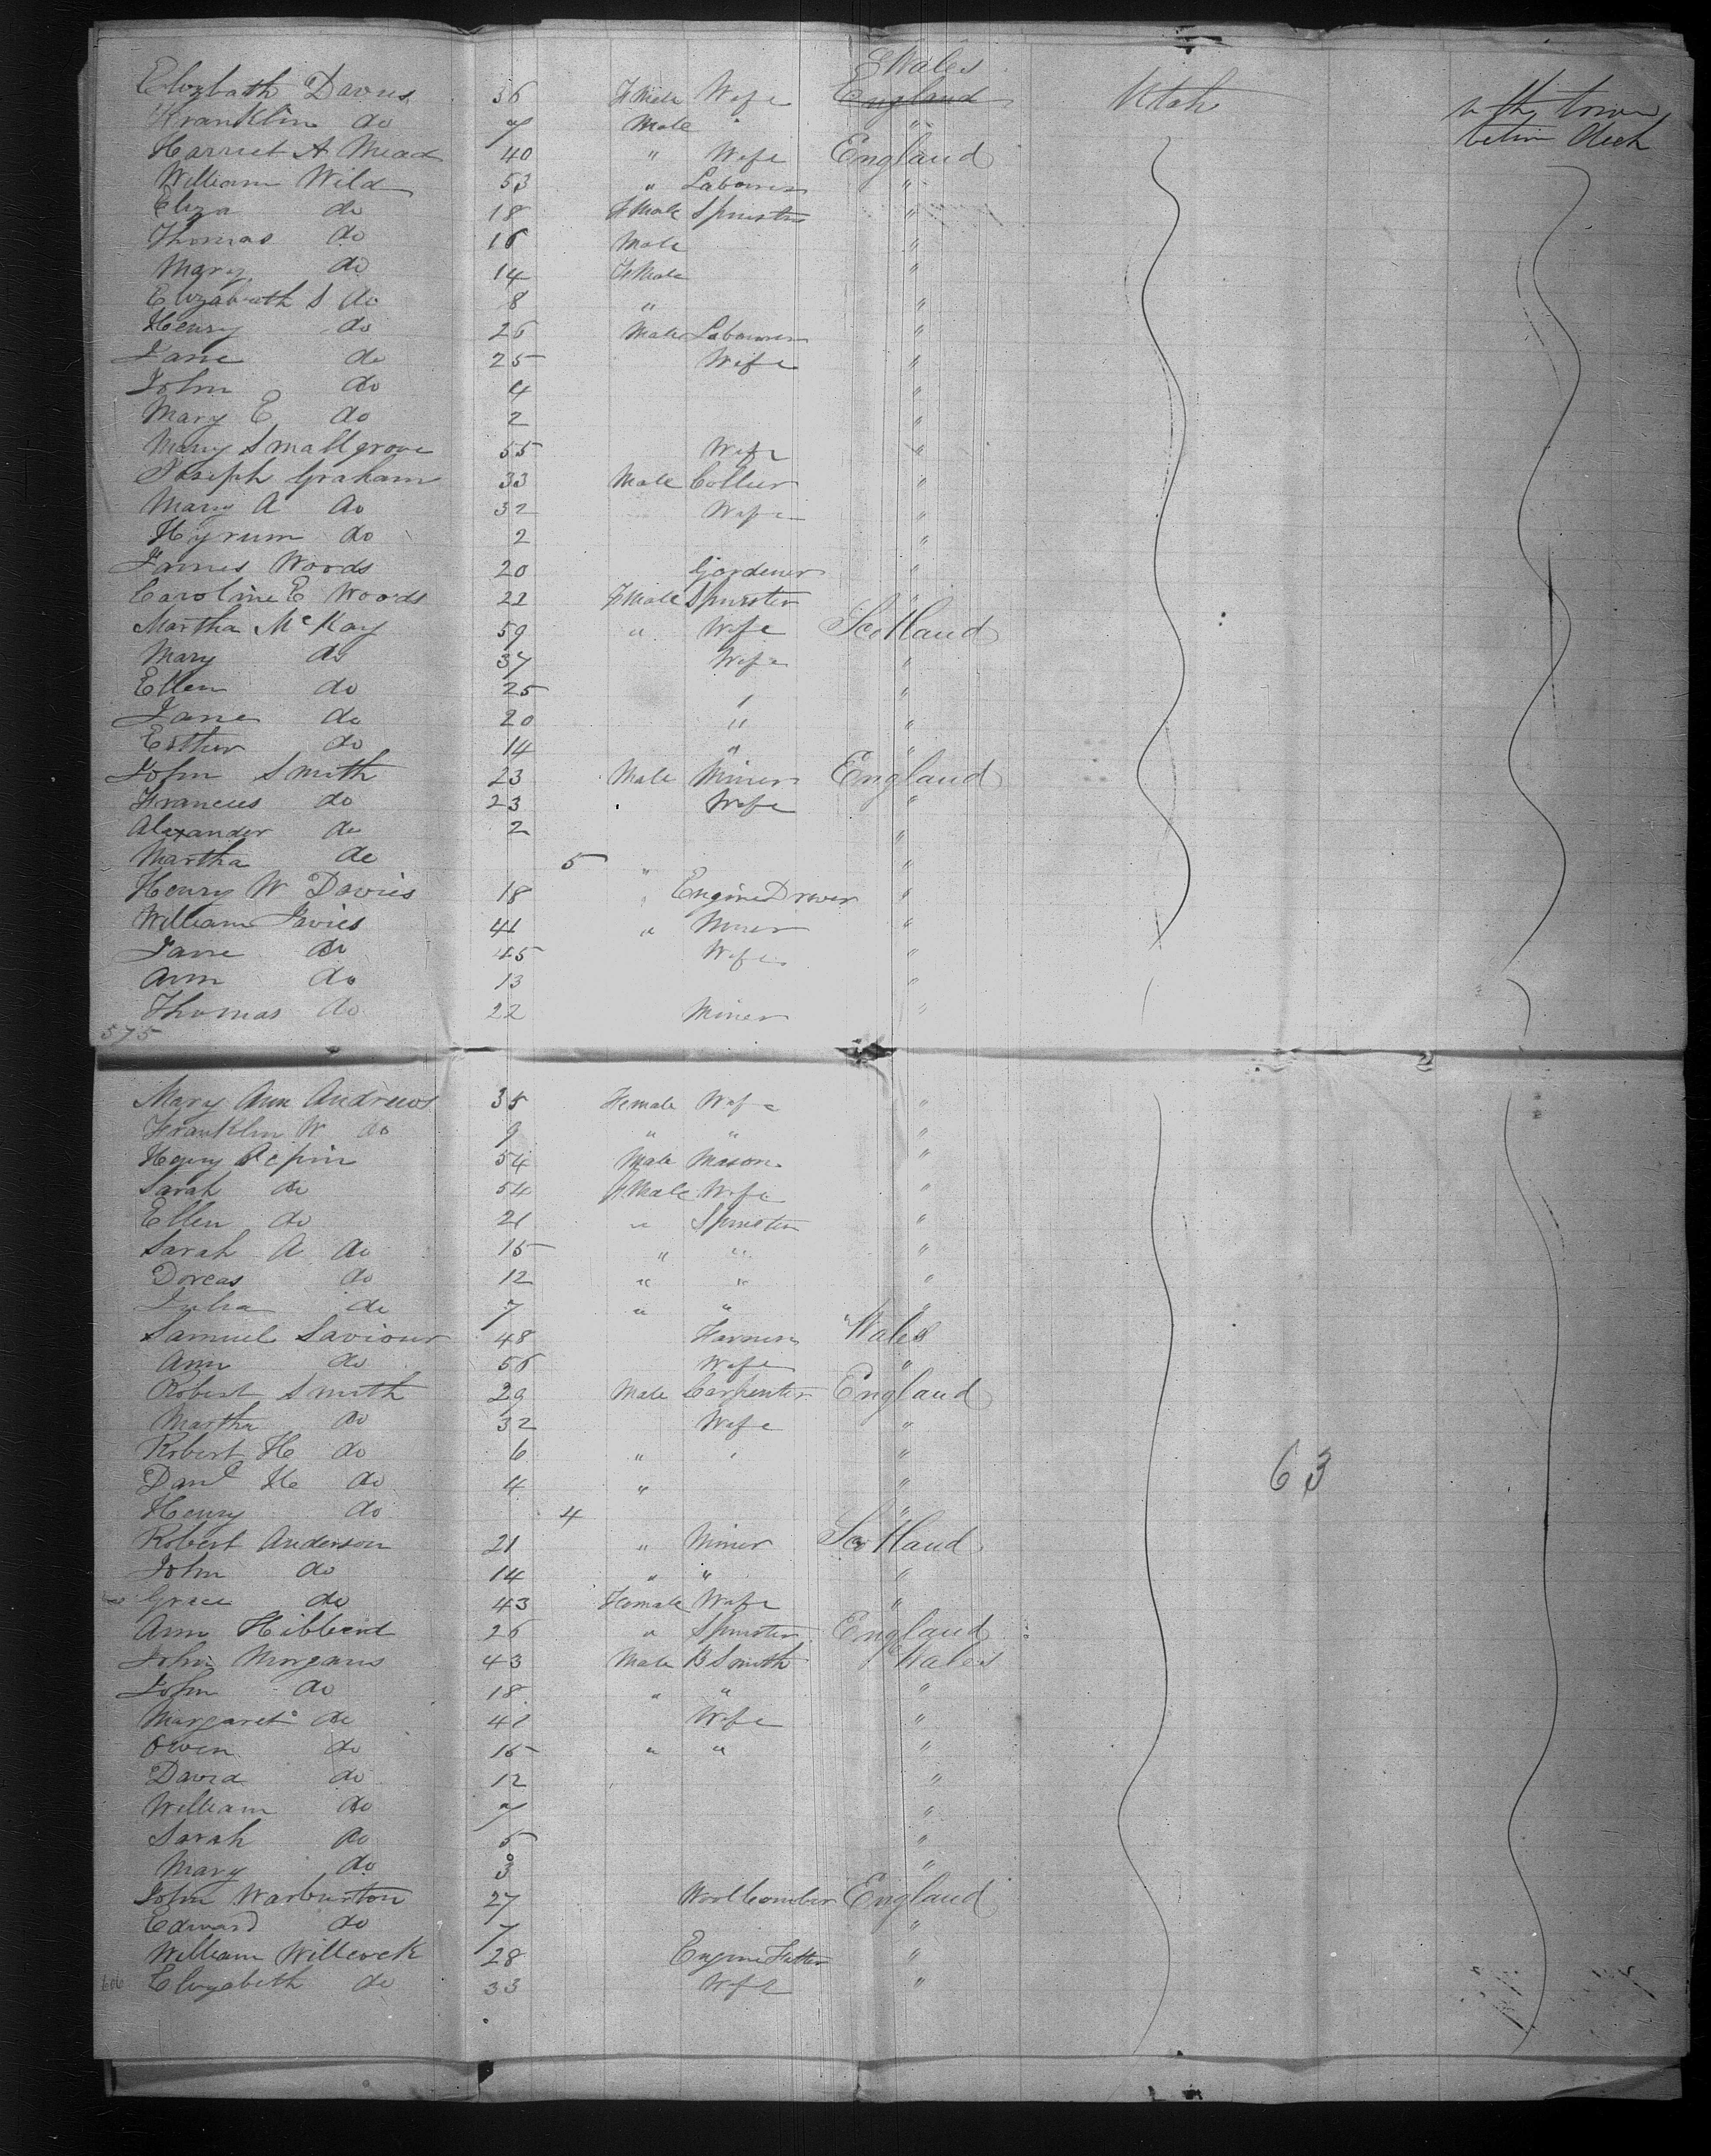 S Wales
Elizbath Davies 36 F Male Wife England Utah
Franklin do 7 Male " in the lower
Harriet A Mead 40 " Wife England betwin deck
William Wild 53 " Labourer "
Eliza do 18 F Male Spinster "
Thomas do 16 Male "
Mary do 14 F Male "
Elizabeath S do 8 " "
Henry do 26 Male Labourer "
Jane do 25 Wife "
John do 4 "
Mary E do 2 "
Mary Smallgrove 55 Wife "
Joseph Graham 33 Male Collier "
Mary A do 32 Wife "
Hyrum do 2 "
James Woods 20 Gardener "
Caroline E Woods 22 F Male Spinster "
Martha McKay 59 " Wife Scotland
Mary do 37 Wife "
Ellen do 25 "
Jane do 20 " "
Esther do 14 " "
John Smith 23 Male Miner England
Francies do 23 Wife "
Alexander do 2 "
Martha do 5 "
Henry W Davies 18 " Engine Driver "
William Davies 41 " Miner "
Jane do 45 Wife "
Ann do 13 "
Thomas do 22 Miner "
575
Mary Ann Andrews 35 Female Wife "
Franklin W do 9 " " "
Henry 54 Male Mason "
Sarah do 54 F Male Wife "
Ellen do 21 " Spinster "
Sarah A do 15 " " "
Dorcas do 12 " " "
Julia do 7 " " "
Samuel Saviour 48 Farmer Wales
Ann do 56 Wife "
Robert Smith 29 Male Carpenter England
Martha do 32 Wife "
Robert H do 6 " "
Danl H do 4 " " 63
Henry do 4 "
Robert Anderson 21 " Miner Scotland
John do 14 " " "
Grace do 43 Female Wife "
Ann Hibberd 26 " Spinster England
John Morgans 43 Male B Smith Wales
John do 18 " " "
Margaret do 42 Wife "
Owen do 15 " " "
David do 12 "
William do 7 "
Sarah do 5 "
Mary do 3 "
John Warburton 27 Woolcomber England
Edward do 7 "
William Willcock 28 Engine Fitter "
606 Elizabeth do 33 Wife "